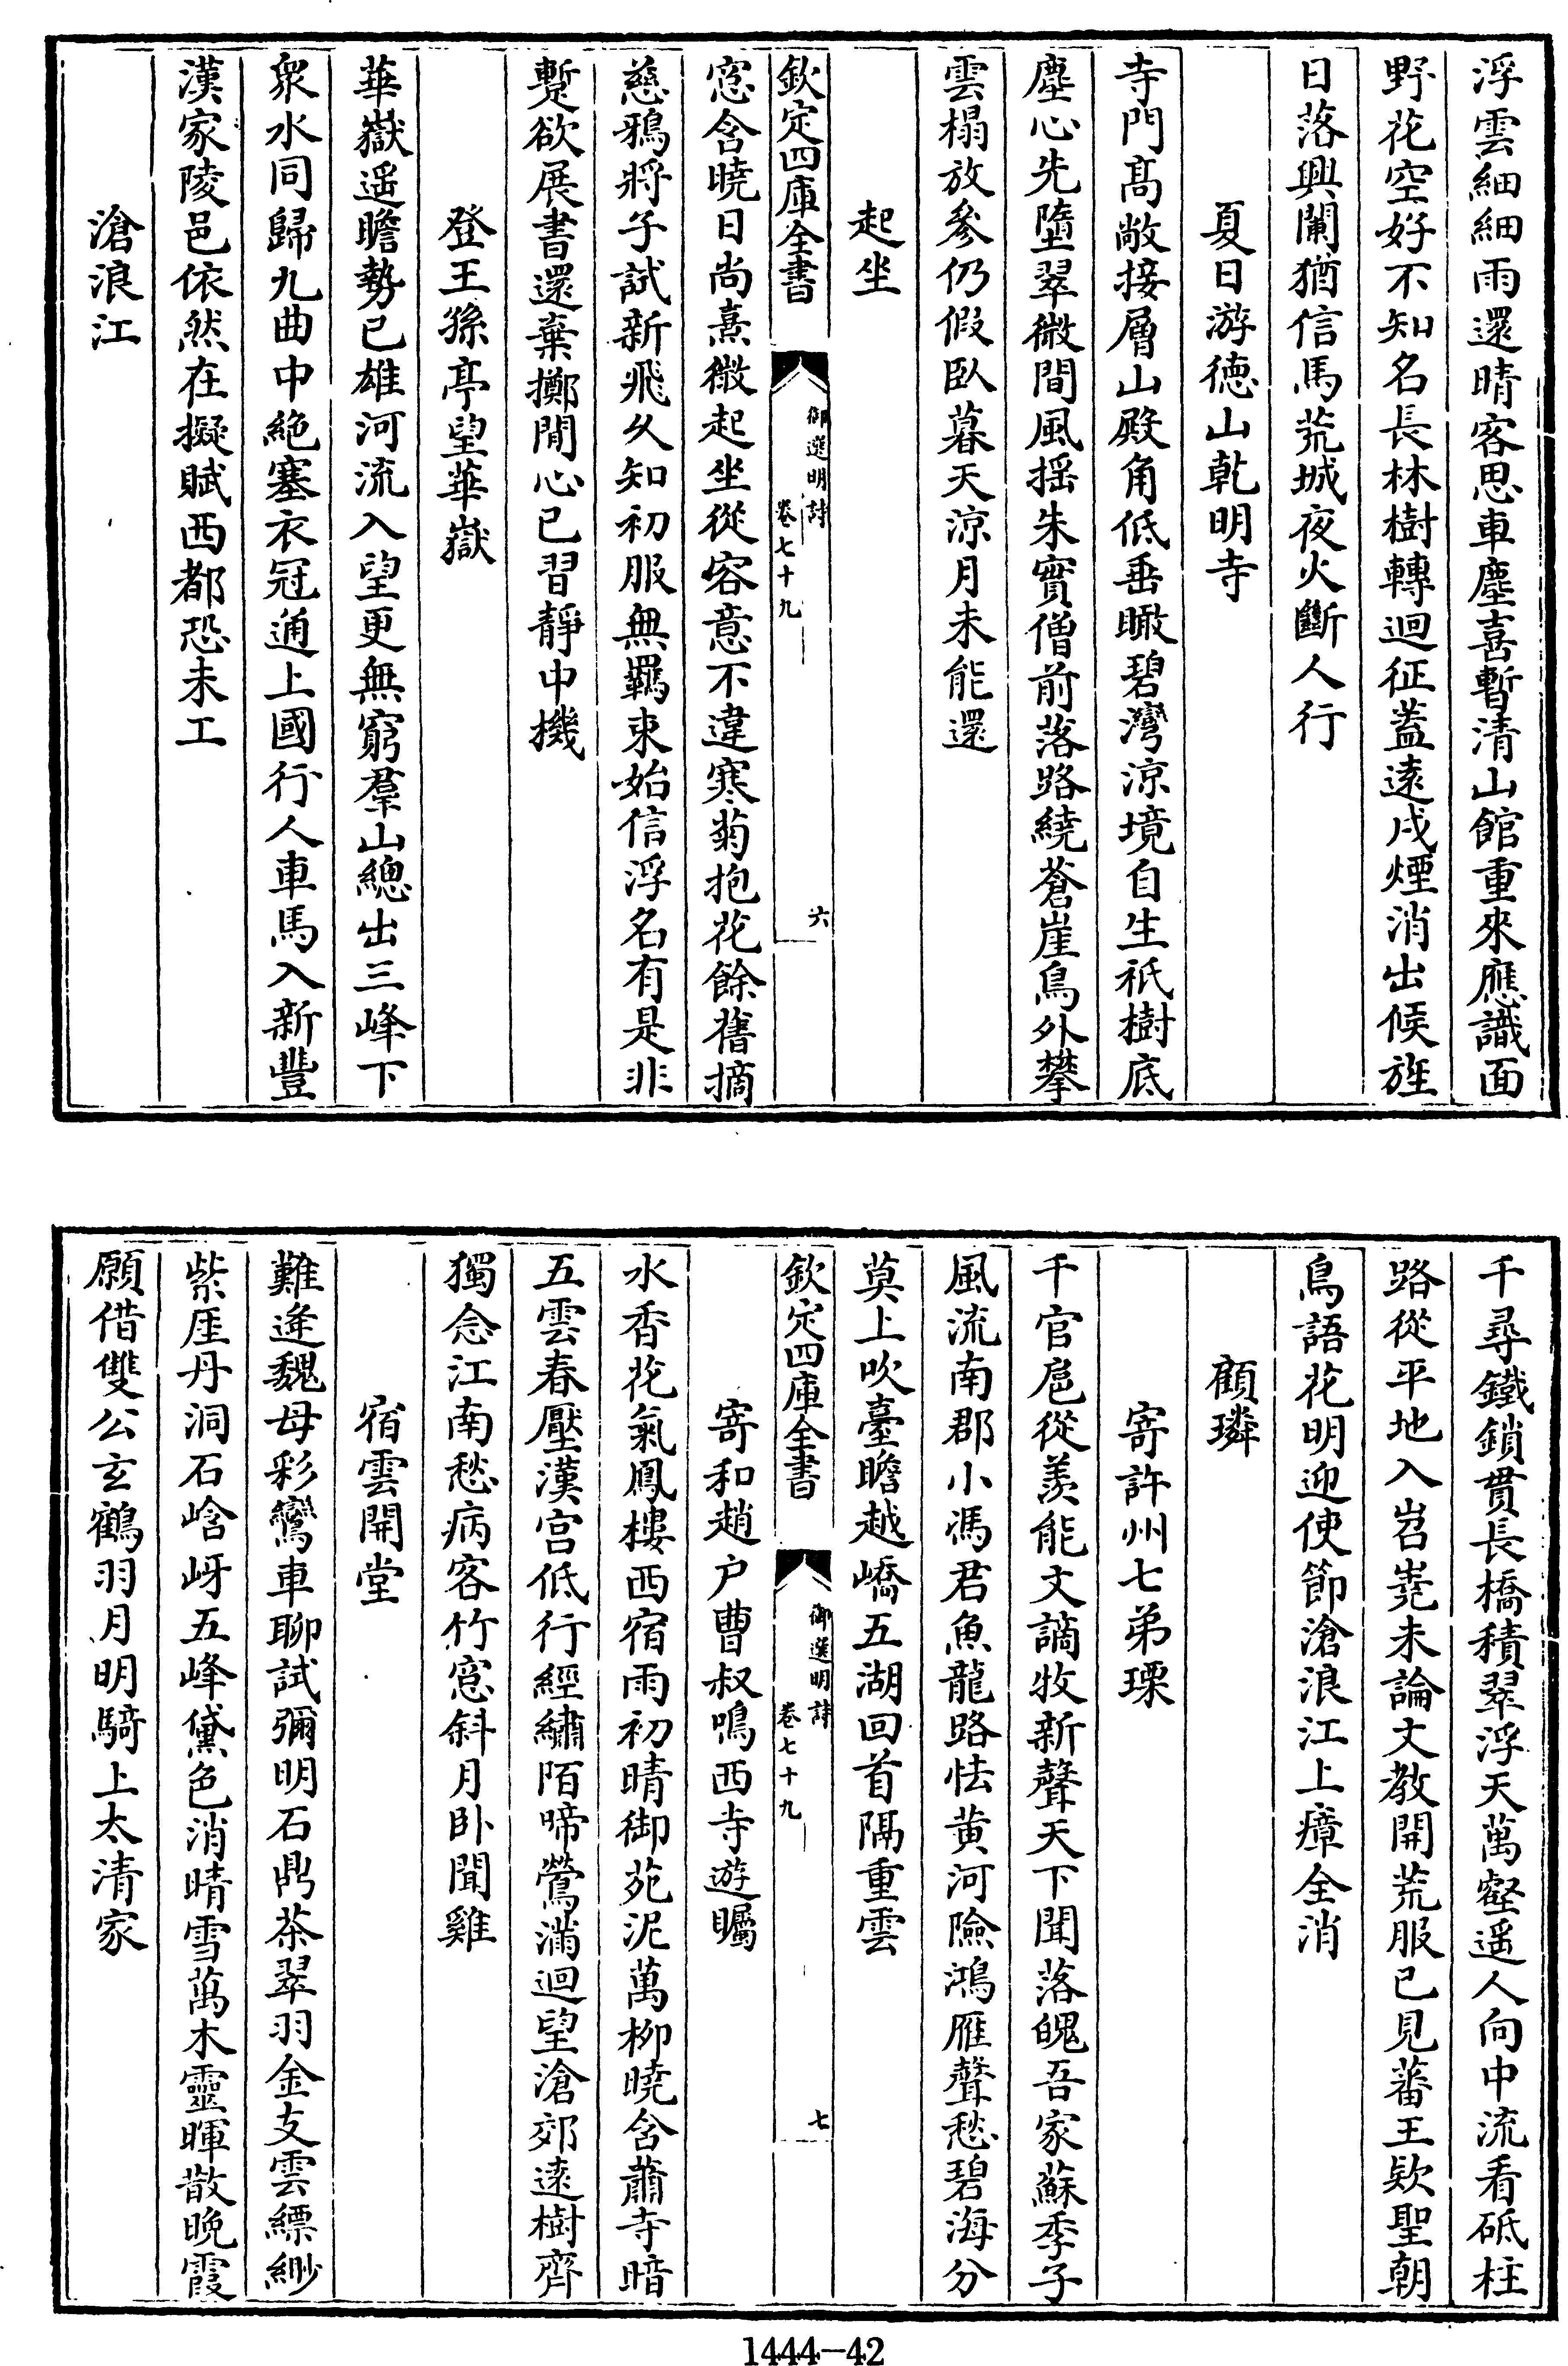 浮雲細細雨還晴客思車塵喜暫清山館重來應識面
野花空好不知名長林樹轉迴征葢逺戍煙消出候旌
日落興闌猶信馬荒城夜火斷人行
夏日游德山乾明寺
寺門髙敞接層山殿角低垂瞰碧灣涼境自生祇樹底
塵心先墮翠微間風揺朱實僧前落路繞蒼崖鳥外攀
雲榻放參仍假臥暮天涼月未能還
起坐
欽定四庫全書
御選明詩
卷七十九
六
窻含曉日尚熹微起坐從容意不違寒菊抱花餘舊摘
慈鴉將子試新飛久知初服無羈束始信浮名有是非
蹔欲展書還棄擲閒心已習靜中機
登王孫亭望華嶽
華嶽遥瞻勢已雄河流入望更無窮羣山總出三峰下
衆水同歸九曲中絶塞衣冠通上國行人車馬入新豐
漢家陵邑依然在擬賦西都恐未工
滄浪江
千尋鐵鎖貫長橋積翠浮天萬壑遥人向中流看砥柱
路從平地入岧嶤未論文教開荒服已見蕃王欵聖朝
鳥語花明迎使節滄浪江上瘴全消
顧璘
寄許州七弟瑮
千官扈從羨能文謫牧新聲天下聞落魄吾家蘇季子
風流南郡小馮君魚龍路怯黄河險鴻雁聲愁碧海分
莫上吹臺瞻越嶠五湖回首隔重雲
欽定四庫全書
御選明詩
卷七十九
七
寄和趙户曹叔鳴西寺遊矚
水香花氣鳳樓西宿雨初晴御苑泥萬柳曉含蕭寺暗
五雲春壓漢宫低行經繡陌啼鶯滿迴望滄郊逺樹齊
獨念江南愁病客竹窻斜月卧聞雞
宿雲開堂
難逢魏母彩鸞車聊試彌明石鼎茶翠羽金支雲縹緲
紫厓丹洞石峆岈五峰黛色消晴雪萬木靈暉散晚霞
願借雙公玄鶴羽月明騎上太清家
1444-42